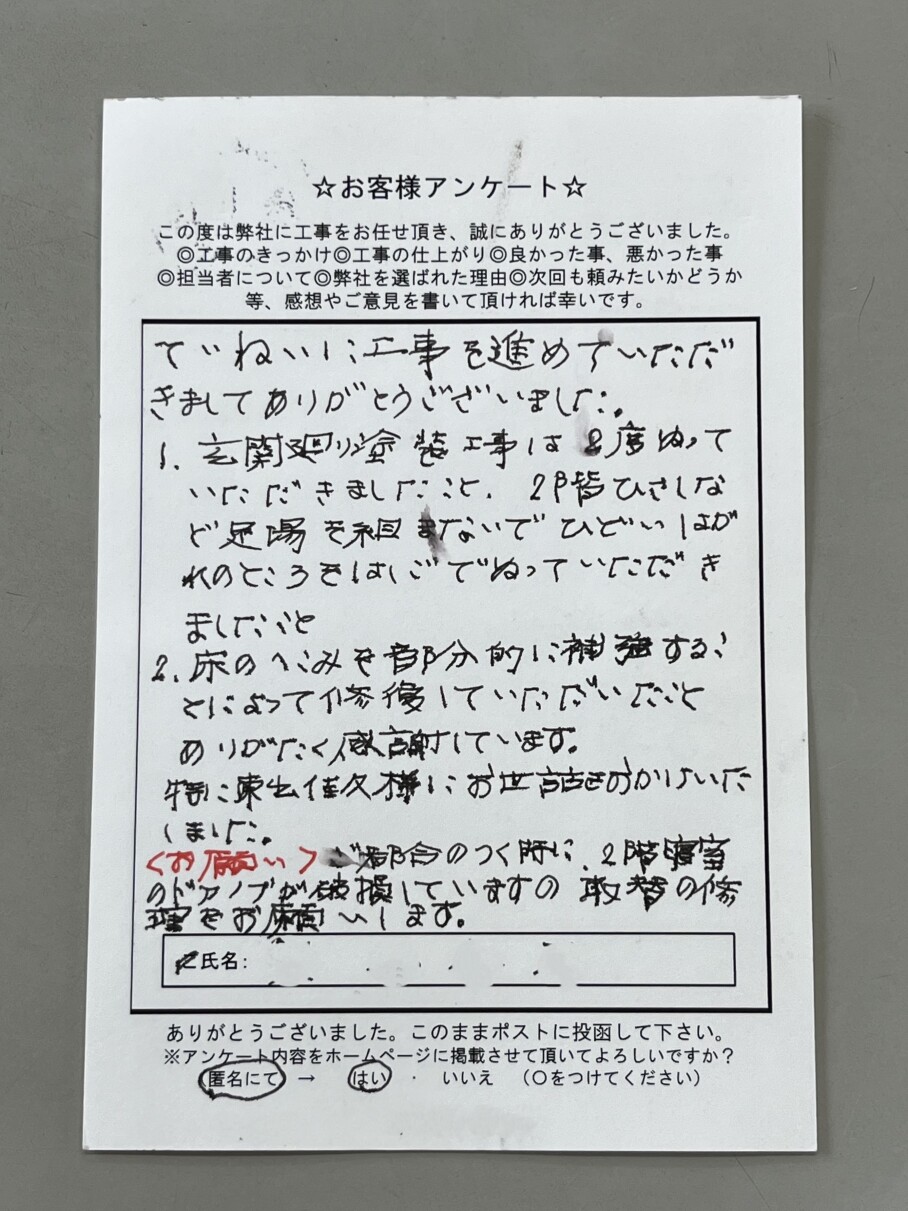 ☆お客様アンケート☆
この度は弊社に工事をお任せ頂き、誠にありがとうございました。
◎工事のきっかけ◎工事の仕上がり◎良かった事、悪かった事
◎担当者について◎弊社を選ばれた理由◎次回も頼みたいかどうか
等、感想やご意見を書いて頂ければ幸いです。
ていねいに工事を進めていただだ
きましてありがとうございました。
1. 玄関廻り塗装工事は2度ぬって
いただきましたこと、2階ひさしな
ど足場を組まないでひどいはが
れのところをはしごでぬっていただき
ましたこと
2. 床のへこみを部分的に補強するこ
とによって修復していただいたこと
ありがたく感謝しています。
特に東出佳久様にお世話をおかけいた
しました。
<お願い> ご都合のつく時に、2階寝室
のドアノブが破損していますの 取替の修
理をお願いします。
氏名:
ありがとうございました。このままポストに投函して下さい。
※アンケート内容をホームページに掲載させて頂いてよろしいですか?
匿名にて → はい ・ いいえ (〇をつけてください)